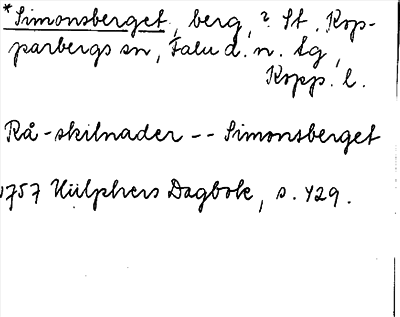 *Simonsberget, berg, ? St. Kop-
parbergs sn, Falu d. n. tg,
Kopp. l.
Rå-skilnader -- Simonsberget
1757 Hülphers Dagbok, s. 429.